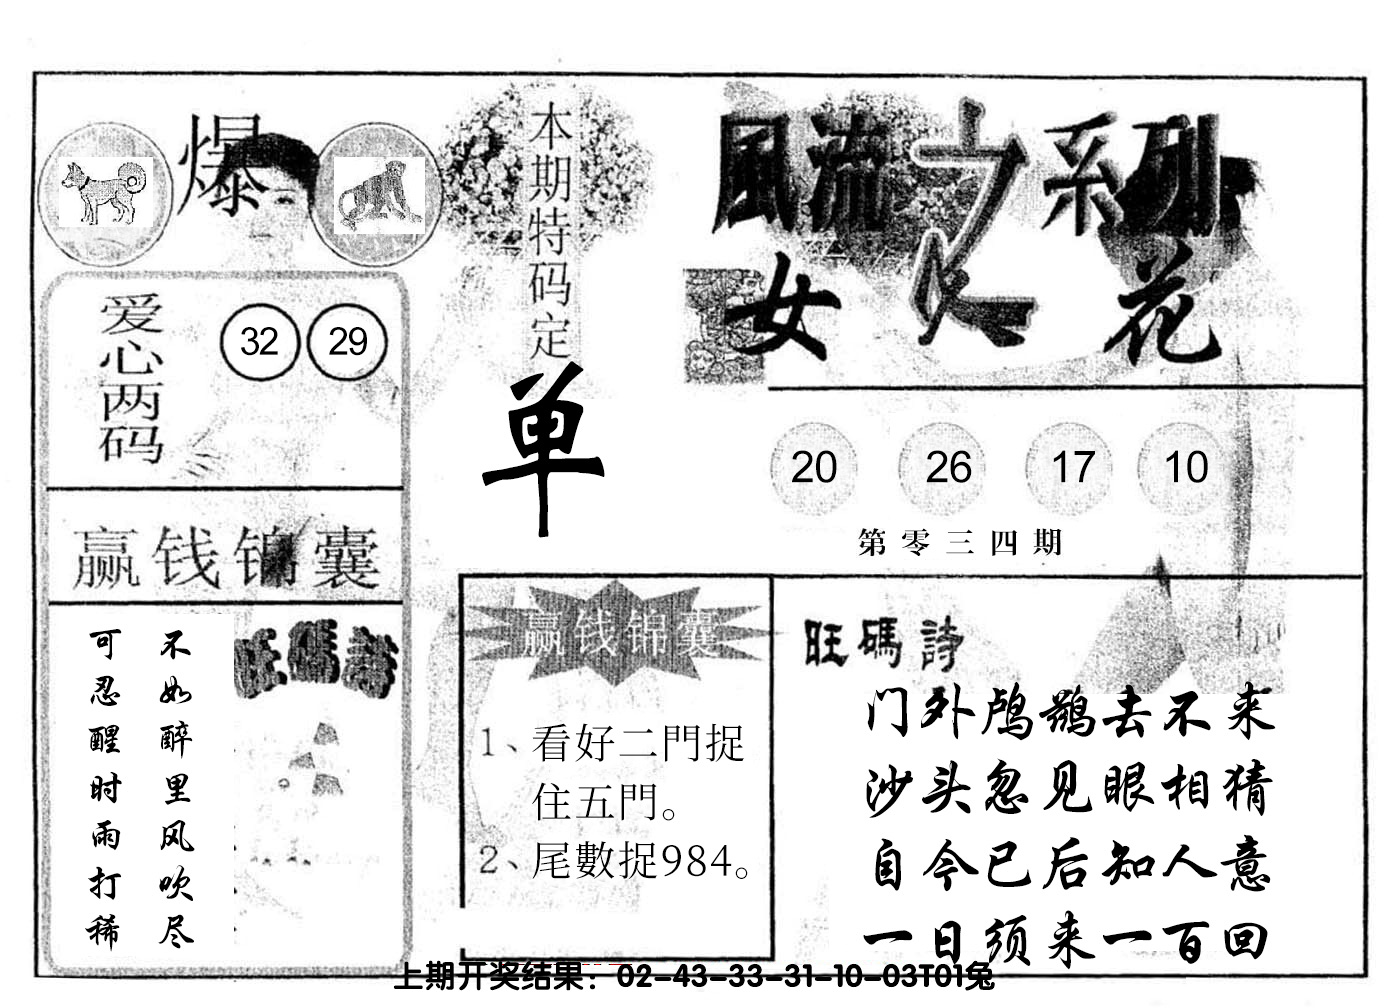 爆
爱心两码
32 29
赢钱锦囊
不如醉里风吹尽
可忍醒时雨打稀
旺碼詩
本期特码定
单
風流之系列
女人花
20 26 17 10
第零三四期
赢钱锦囊
1、看好二門捉
住五門。
2、尾數捉984。
旺碼詩
门外鸬鹚去不来
沙头忽见眼相猜
自今已后知人意
一日须来一百回
上期开奖结果：02-43-33-31-10-03T01兔